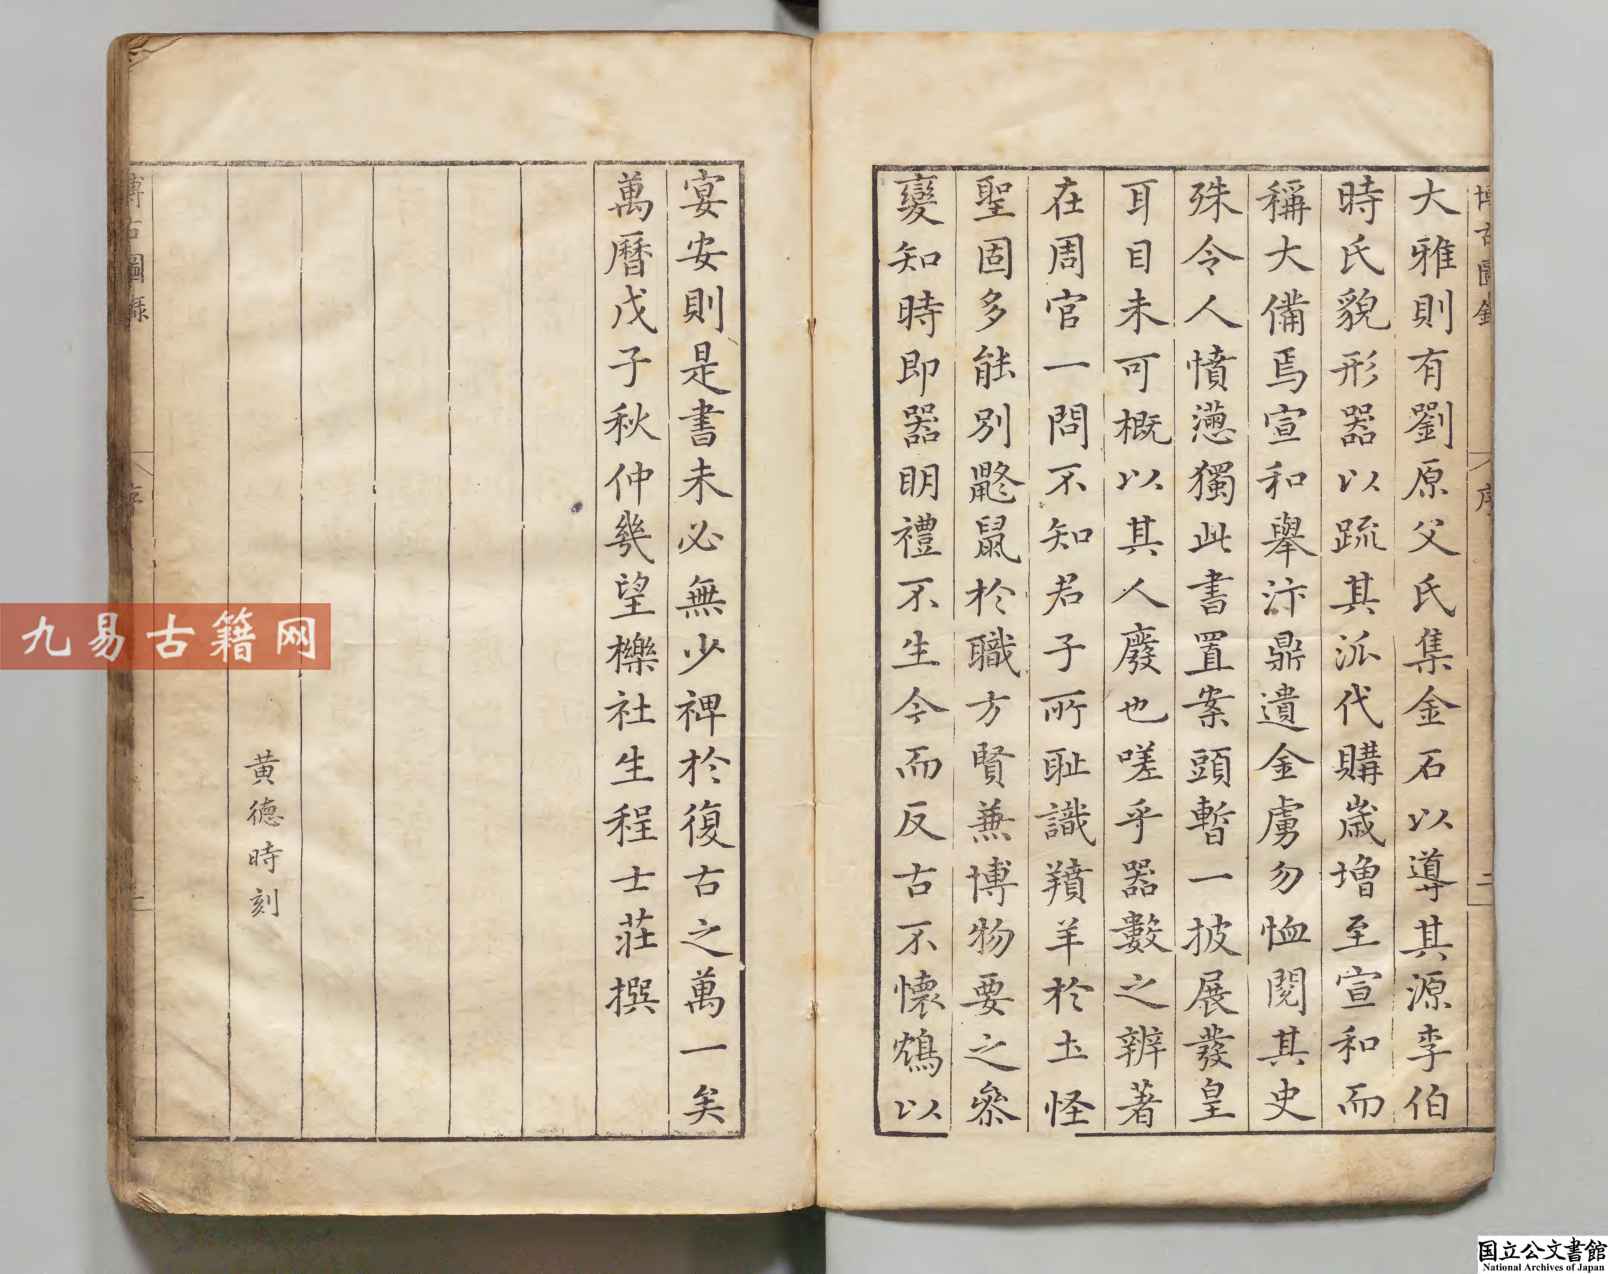 大雅則有劉原父氏集金石以導其源李伯
時氏貌形器以疏其派代購歲增至宣和而
稱大備焉宣和舉汴鼎遺金虜勿恤閱其史
殊令人憤懣獨此書置案頭暫一披展發皇
耳目未可概以其人廢也嗟乎器數之辨著
在周官一問不知君子所耻識羵羊於土怪
聖固多能別鼮鼠於職方賢兼博物要之參
變知時即器明禮不生今而反古不懷鴆以
宴安則是書未必無少裨於復古之萬一矣
萬曆戊子秋仲幾望櫟社生程士莊撰
黄德時刻
博古圖錄
序
二
博古圖錄
序
九易古籍网
国立公文書館
National Archives of Japan